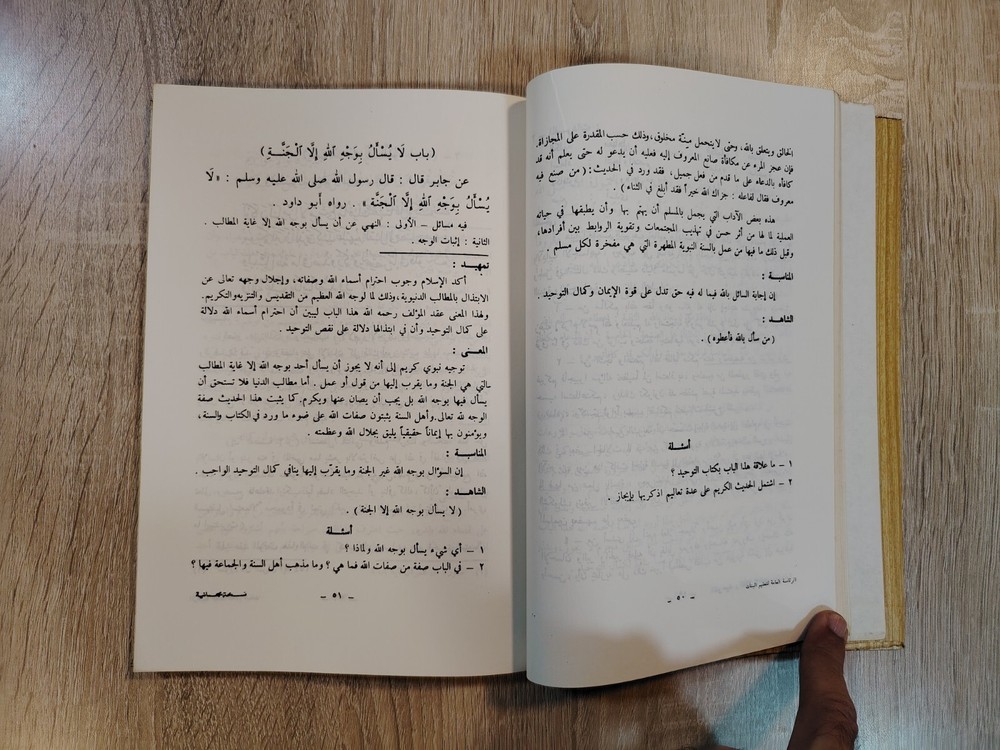 الخالق ويتعلق بالله، وحتى لا يتحمل ميتة مخلوق، وذلك حسب المقدرة على المجازاة.
فإن عجز المرء عن مكافأة صانع المعروف إليه فعليه أن يدعو له حتى يعلم أنه قد
كافأه بالدعاء على ما قدم من فعل جميل. فقد ورد في الحديث: (من صنع فيه
معروف فقال لفاعله : جزاك الله خيراً فقد أبلغ في الثناء) .
هذه بعض الآداب التي يجمل بالمسلم أن يهتم بها وأن يطبقها في حياته
العملية لما لها من أثر حسن في تهذيب المجتمعات وتقوية الروابط بين أفرادها،
وقبل ذلك ما فيها من عمل بالسنة النبوية المطهرة التي هي مفخرة لكل مسلم .
المناسبة :
إن إجابة السائل بالله فيما له فيه حق تدل على قوة الإيمان وكمال التوحيد .
الشاهد :
(من سأل بالله فأعطوه) .
أسئلة
١ – ما علاقة هذا الباب بكتاب التوحيد ؟
٢ – اشتمل الحديث الكريم على عدة تعاليم اذكريها بإيجاز .
الرئاسة العامة لتعليم البنات
– ٥٠ –
(باب لَا يُسْأَلُ بِوَجْهِ اللهِ إِلَّا الْجَنَّــةِ)
عن جابر قال : قال رسول الله صلى الله عليه وسلم : «لَا
يُسْأَلُ بِوَجْهِ اللهِ إِلَّا الْجَنَّة» . رواه أبو داود .
فيه مسائل – الأولى : النهي عن أن يسأل بوجه الله إلا غاية المطالب .
الثانية : إثبات الوجه .
تمهيد :
أكد الإسلام وجوب احترام أسماء الله وصفاته، وإجلال وجهه تعالى عن
الابتذال بالمطالب الدنيوية، وذلك لما لوجه الله العظيم من التقديس والتنزيه والتكريم.
ولهذا المعنى عقد المؤلف رحمه الله هذا الباب ليبين أن احترام أسماء الله دلالة
على كمال التوحيد وأن في ابتذالها دلالة على نقص التوحيد .
المعنى :
توجيه نبوي كريم إلى أنه لا يجوز أن يسأل أحد بوجه الله إلا غاية المطالب
التي هي الجنة وما يقرب إليها من قول أو عمل . أما مطالب الدنيا فلا تستحق أن
يسأل فيها بوجه الله بل يجب أن يصان عنها ويكرم. كما يثبت هذا الحديث صفة
الوجه لله تعالى. وأهل السنة يثبتون صفات الله على ضوء ما ورد في الكتاب والسنة،
ويؤمنون بها إيماناً حقيقياً يليق بجلال الله وعظمته .
المناسبة :
إن السؤال بوجه الله غير الجنة وما يقرّب إليها ينافي كمال التوحيد الواجب .
الشاهد :
(لا يسأل بوجه الله إلا الجنة) .
أسئلة
١ – أي شيء يسأل بوجه الله ولماذا ؟
٢ – في الباب صفة من صفات الله فما هي ؟ وما مذهب أهل السنة والجماعة فيها ؟
– ٥١ –
نسخة مجانية